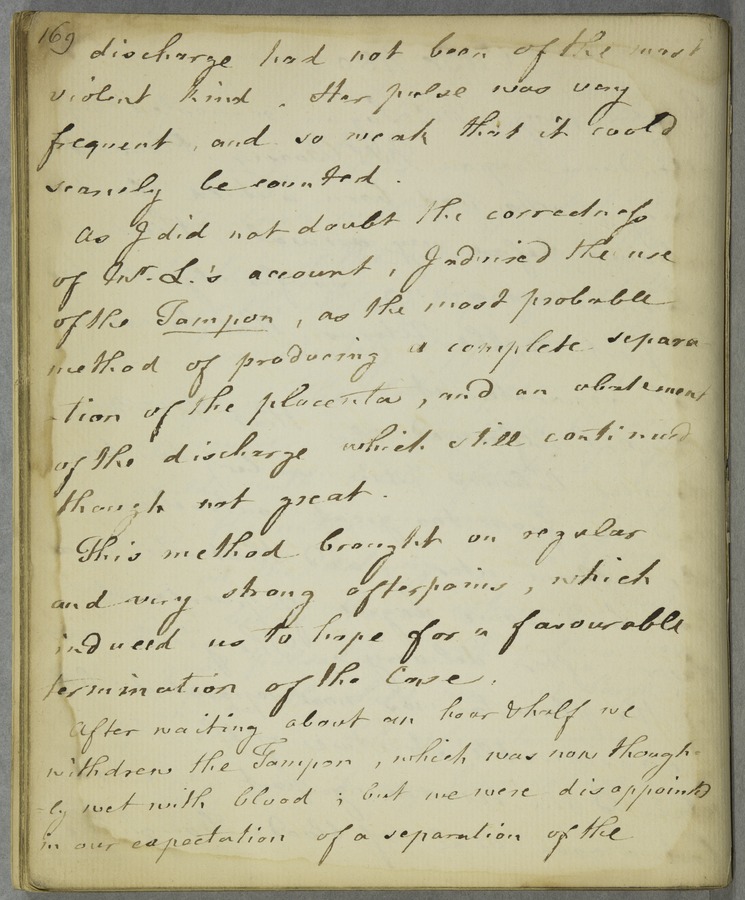 169
discharge had not been of the most
violent kind . Her pulse was very
frequent , and so weak that it could
scarsely be counted .
As I did not doubt the correctness
of Mr. L.'s account , I advised the use
of the Tampon , as the most probable
method of producing a complete separa
-tion of the placenta , and an abatement
of the discharge which still continued
though not great .
This method brought on regular
and very strong afterpains , which
induced us to hope for a favourable
termination of the Case .
After waiting about an hour & half we
withdrew the Tampon , which was now though-
-ly wet with blood ; but we were disappointd
in our expectation of a separation of the